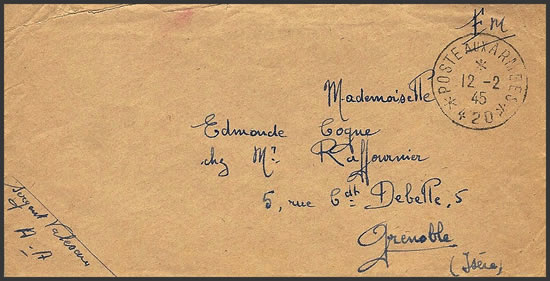 Fm
*POSTE AUX ARMÉES*
*
12 -2
45
420
Mademoiselle
Edmonde Cogne
chez Mr Raffournier
5, rue Cdt Debelle, 5
Grenoble
(Isère)
Sergent
A-A